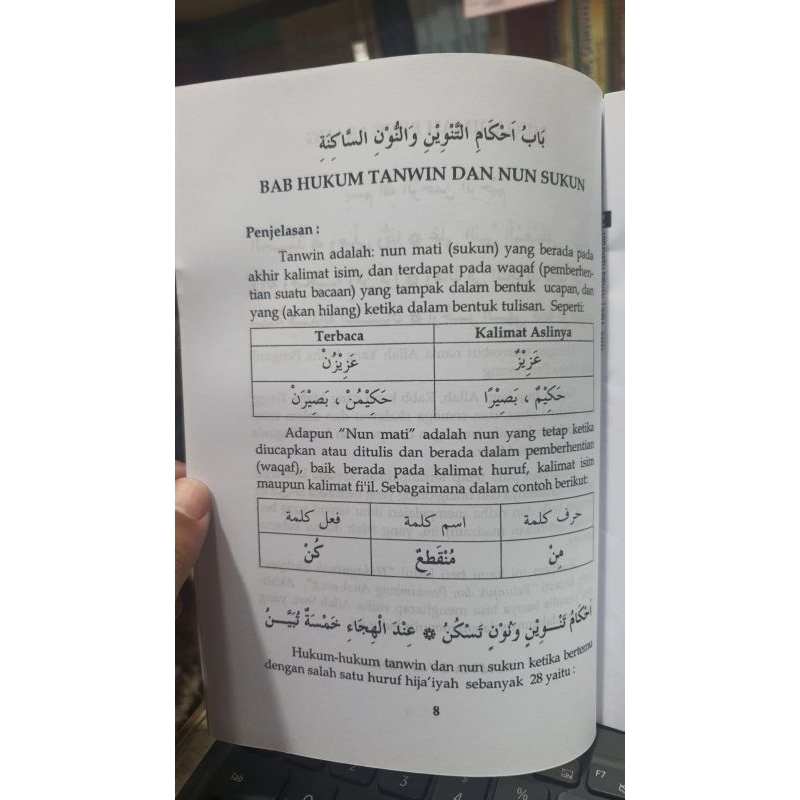 بَابُ اَحْكَامِ التَّنْوِيْنِ وَالنُّوْنِ السَّاكِنَةِ
BAB HUKUM TANWIN DAN NUN SUKUN
Penjelasan :
Tanwin adalah: nun mati (sukun) yang berada pada
akhir kalimat isim, dan terdapat pada waqaf (pemberhen-
tian suatu bacaan) yang tampak dalam bentuk ucapan, dan
yang (akan hilang) ketika dalam bentuk tulisan. Seperti:
Terbaca Kalimat Aslinya
عَزِيْزُنْ عَزِيْزٌ
حَكِيْمُنْ ، بَصِيْرَنْ حَكِيْمٌ ، بَصِيْرًا
Adapun “Nun mati” adalah nun yang tetap ketika
diucapkan atau ditulis dan berada dalam pemberhentian
(waqaf), baik berada pada kalimat huruf, kalimat isim
maupun kalimat fi'il. Sebagaimana dalam contoh berikut:
حرف كلمة اسم كلمة فعل كلمة
مِنْ مُنْقَطِعٌ كُنْ
اَحْكَامُ تَنْـوِيْنٍ وَنُوْنٍ تَسْكُنُ ۞ عِنْدَ الْهِجَاءِ خَمْسَةٌ تُبَيَّـنُ
Hukum-hukum tanwin dan nun sukun ketika bertemu
dengan salah satu huruf hija'iyah sebanyak 28 yaitu :
8
Tab
2
3
4
F7